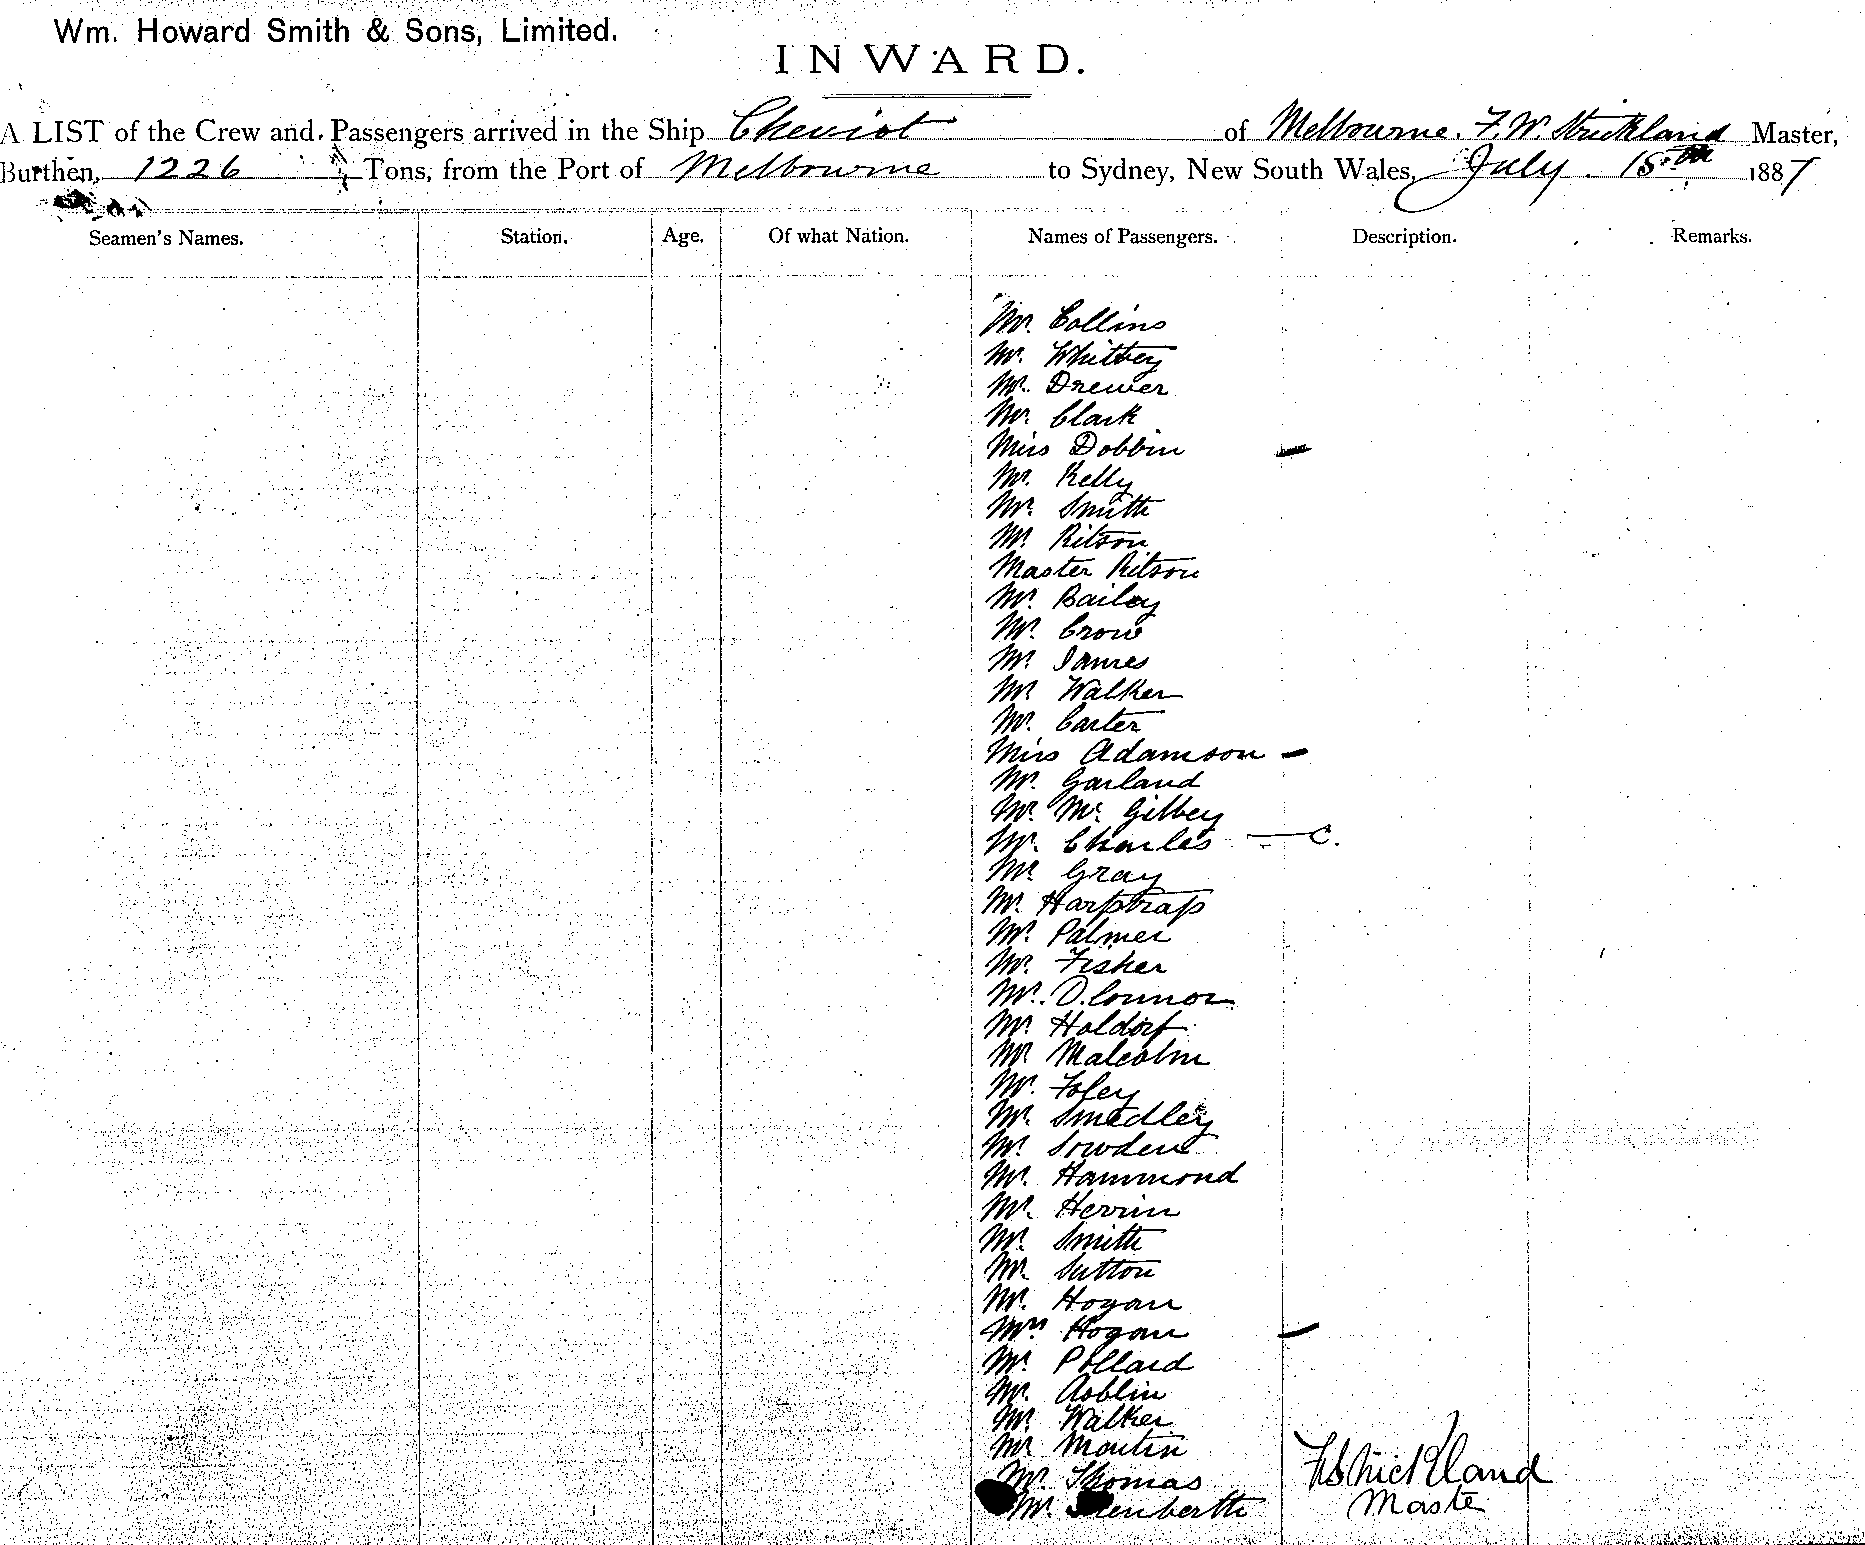 Wm. Howard Smith & Sons, Limited.
INWARD.
A LIST of the Crew and Passengers arrived in the Ship Cheviot of Melbourne. F. W. Strickland Master,
Burthen, 1226 Tons, from the Port of Melbourne to Sydney, New South Wales, July 18th 1887
Seamen's Names. Station. Age. Of what Nation. Names of Passengers. Description. Remarks.
Mr. Collins
Mr. Whitbey
Mr. Drewer
Mr. Clark
Miss Dobbin —
Mr. Kelly
Mr. Smith
Mr. Ritson
Master Ritson
Mr. Bailey
Mr. Crow
Mr. James
Mr. Walker
Mr. Carter
Miss Adamson —
Mr. Garland
Mr. Mc. Gilbey
Mr. Charles — C.
Mr. Gray
Mr. Harpstrap
Mr. Palmer
Mr. Fisher
Mr. O.Connor
Mr. Holdorf
Mr. Malcolm
Mr. Foley
Mr. Smedley
Mr. Sowden
Mr. Hammond
Mr. Herrin
Mr. Smith
Mr. Sutton
Mr. Hogan
Mrs Hogan —
Mr. Pollard
Mr. Aoblin
Mr. Walker
Mr. Martin
Mr. Thomas
Mr.
F Strickland
Master